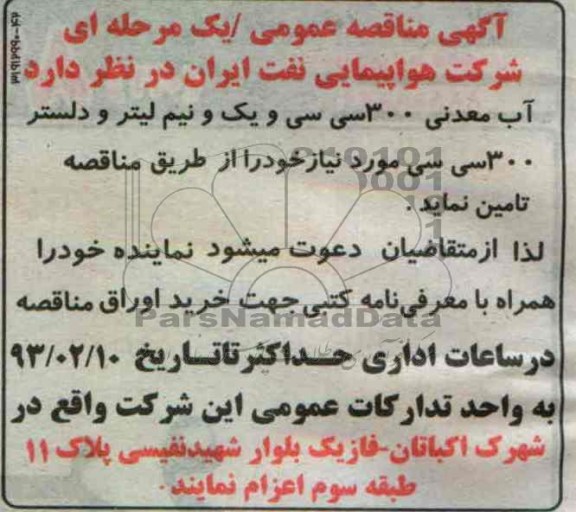 آگهی مناقصه عمومی /یک مرحله ای
شرکت هواپیمایی نفت ایران در نظر دارد
آب معدنی ۳۰۰سی سی و یک و نیم لیتر و دلستر
۳۰۰سی سی مورد نیازخودرا از طریق مناقصه
تامین نماید.
لذا ازمتقاضیان دعوت میشود نماینده خودرا
همراه با معرفی‌نامه کتبی جهت خرید اوراق مناقصه
درساعات اداری حـداکثرتاتـاریخ ۹۳/۰۲/۱۰
به واحد تدارکات عمومی این شرکت واقع در
شهرک اکباتان-فازیک بلوار شهیدنفیسی پلاک ۱۱
طبقه سوم اعزام نمایند.
ParsNamadData